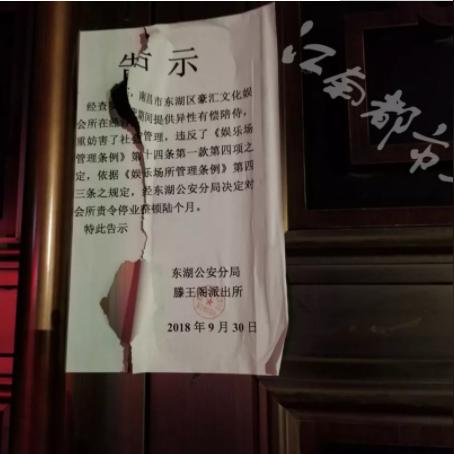 告示
经查，南昌市东湖区豪汇文化娱
会所在经 期间提供异性有偿陪侍，
重妨害了社 管理，违反了《娱乐场
管理条例》第十四条第一款第四项之
定，依据《娱乐场所管理条例》第四
三条之规定，经东湖公安分局决定对
会所责令停业整顿陆个月。
特此告示
东湖公安分局
滕王阁派出所
2018年9月30日
江南都市